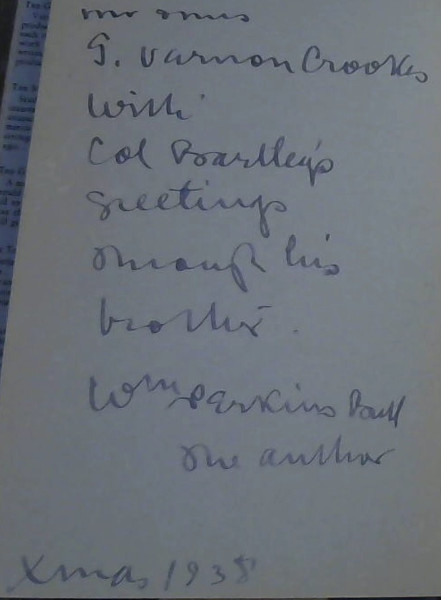 G. Varnon Crookes
With
Col Bartley's
greetings
through his
brother.
Wm Perkins Bull
The author
Xmas 1938